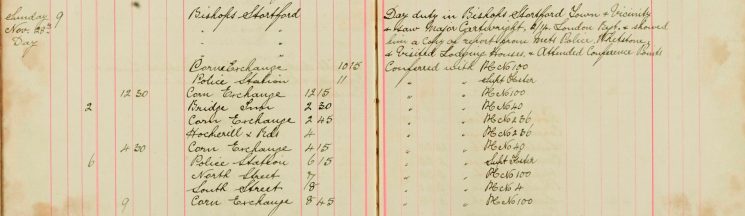 Sunday 9 Bishops Stortford Day duty in Bishops Stortford Town & Vicinity
Nov. 28th " & saw Major Cartwright, 2/14 London Regt. & showed
Day " him a copy of report from Metr. Police,
" & Visited Lodging Houses, & Attended Conference Points
Corn Exchange 10 15 Conferred with PC No 100
Police Station 11 " " Supt Foster
12 30 Corn Exchange 12 15 " " PC No 100
2 Bridge Inn 2 30 " " PC No 40
Corn Exchange 2 45 " " PC No 236
Hockerill & Rds 4 " " PC No 236
4 30 Corn Exchange 4 15 " " PC No 40
6 Police Station 6 15 " " Supt Foster
North Street 7 " " PC No 100
South Street 8 " " PC No 4
9 Corn Exchange 8 45 " " PC No 100